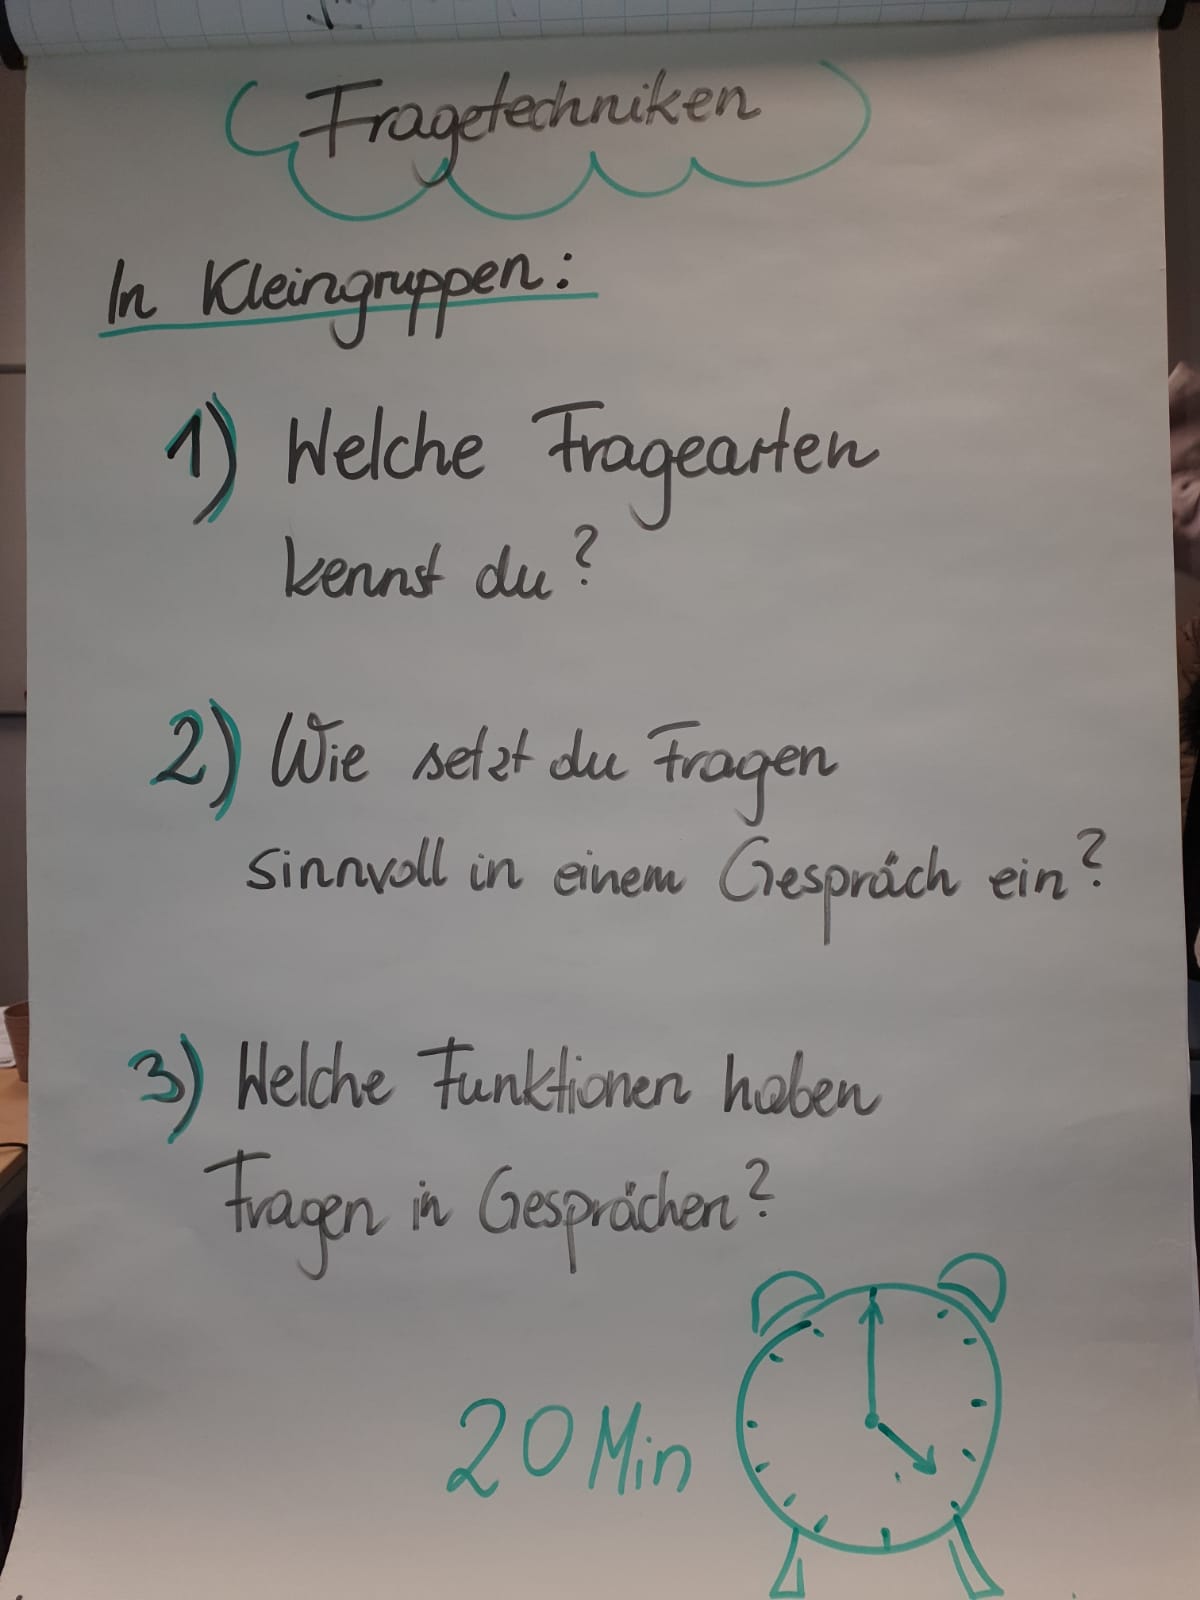 Fragetechniken
In Kleingruppen:
1) Welche Fragearten
kennst du?
2) Wie setzt du Fragen
sinnvoll in einem Gespräch ein?
3) Welche Funktionen haben
Fragen in Gesprächen?
20 Min